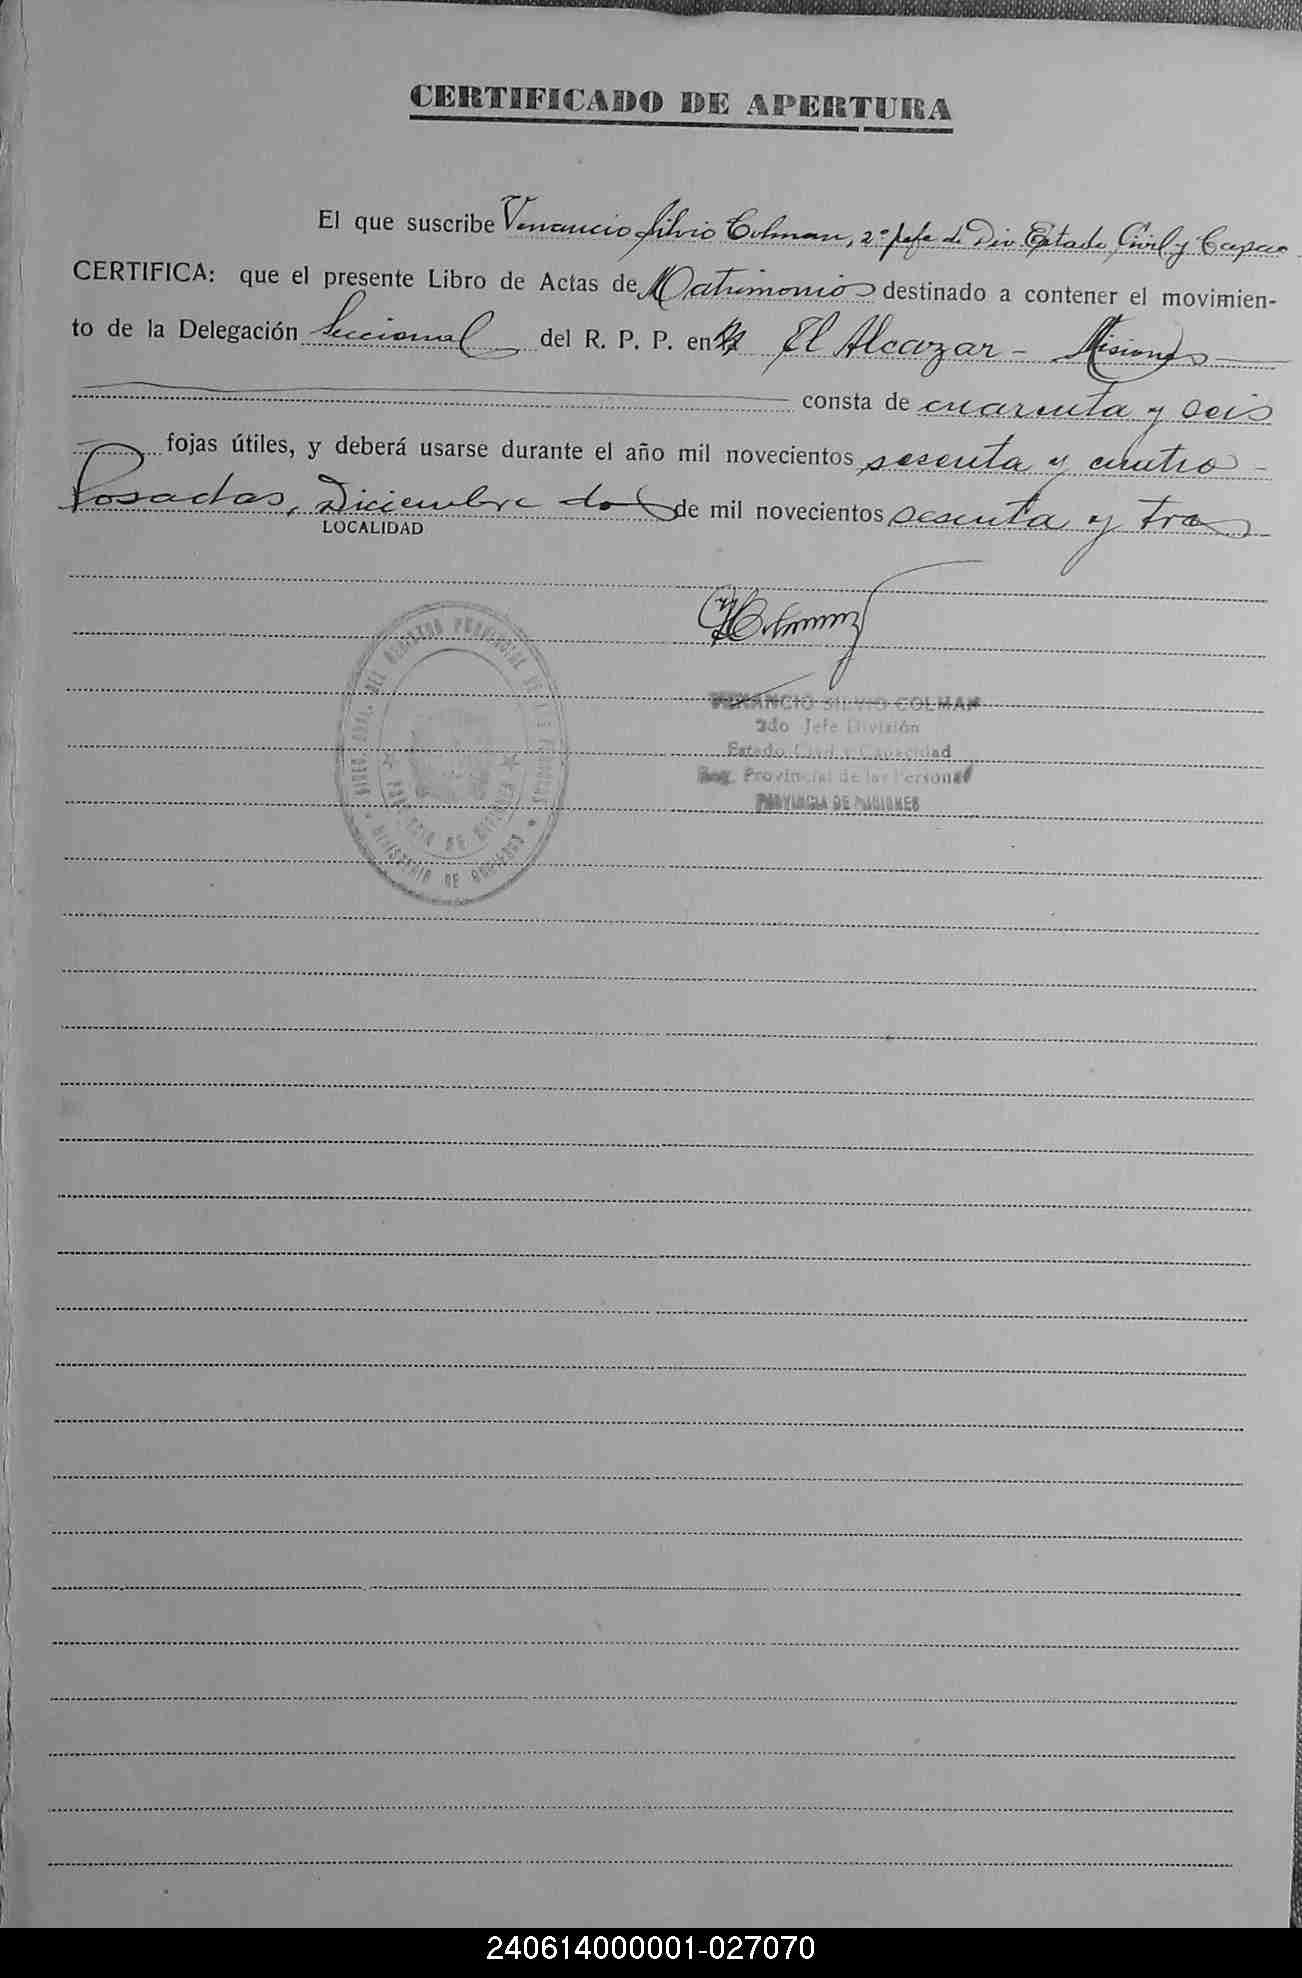 CERTIFICADO DE APERTURA
El que suscribe Venancio Silvio Colman, 2º Jefe de Div. Estado Civil y Capac
CERTIFICA: que el presente Libro de Actas de Matrimonios destinado a contener el movimien-
to de la Delegación Seccional del R. P. P. en El Alcazar - Misiones
consta de cuarenta y seis
fojas útiles, y deberá usarse durante el año mil novecientos sesenta y cuatro -
Posadas, Diciembre dos de mil novecientos sesenta y tres
LOCALIDAD
VENANCIO SILVIO COLMAN
2do Jefe División
Estado Civil y Capacidad
Reg. Provincial de las Personas
PROVINCIA DE MISIONES
DIREC. GRAL. DEL REGISTRO PROVINCIAL DE LAS PERSONAS
PROVINCIA DE MISIONES
MINISTERIO DE GOBIERNO
240614000001-027070